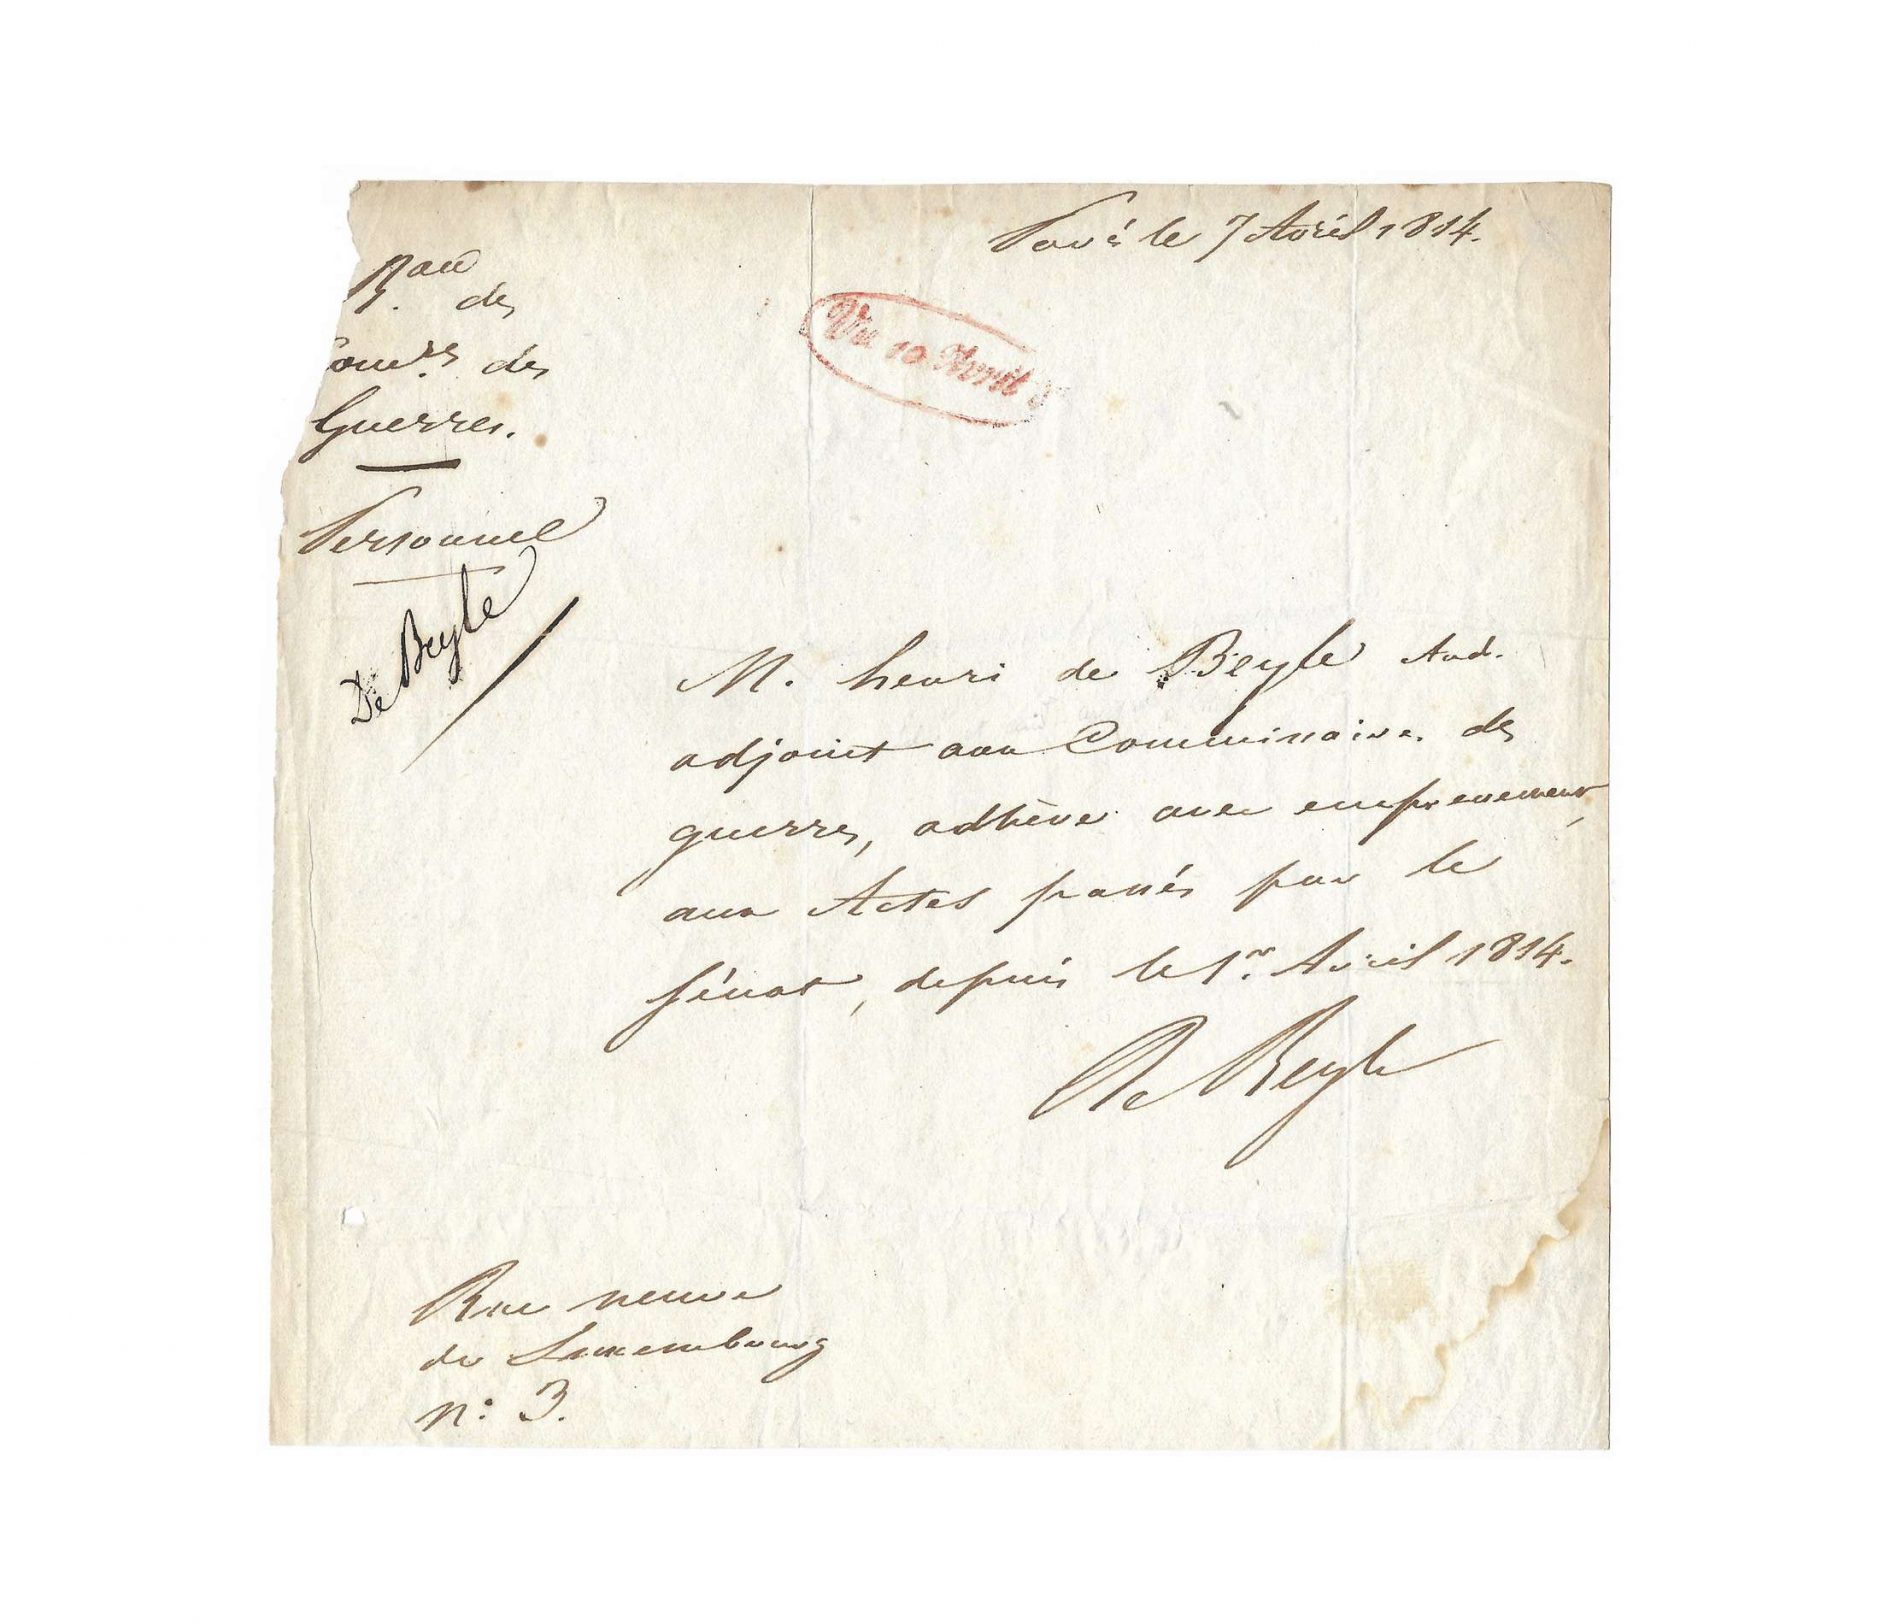 Paris le 7 Avril 1814.
Vu 10 Avril
Bau
des
Comres des
Guerres.
Personnel
De Beyle
M. henri de Beyle Aud.
adjoint aux Commissaires des
guerres, adhère avec empressement,
aux Actes passés par le
Sénat, depuis le 1er Avril 1814.
De Beyle
Rue neuve
du Luxembourg
n: 3.